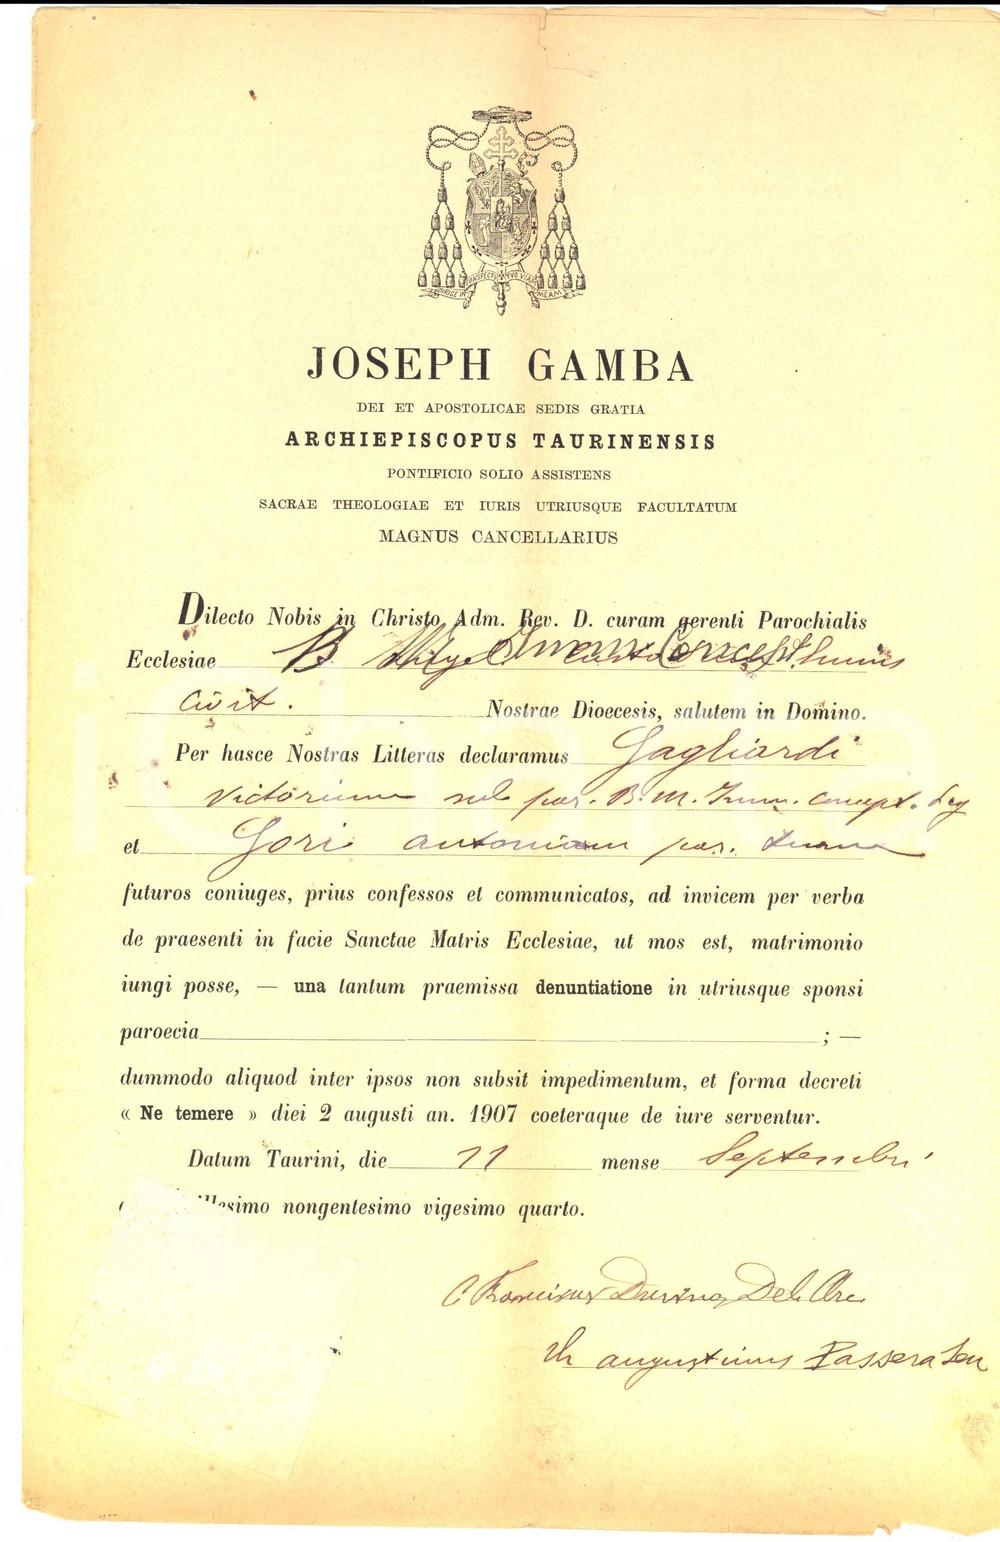 DIRIGE IN CONSPECTU TUO VIAM MEAM
JOSEPH GAMBA
DEI ET APOSTOLICAE SEDIS GRATIA
ARCHIEPISCOPUS TAURINENSIS
PONTIFICIO SOLIO ASSISTENS
SACRAE THEOLOGIAE ET IURIS UTRIUSQUE FACULTATUM
MAGNUS CANCELLARIUS
Dilecto Nobis in Christo Adm. Rev. D. curam gerenti Parochialis
Ecclesiae B
civit. Nostrae Dioecesis, salutem in Domino.
Per hasce Nostras Litteras declaramus Gagliardi
Victorium sub par. B. M. Imm. Concept.
et Gori Antoniam par.
futuros coniuges, prius confessos et communicatos, ad invicem per verba
de praesenti in facie Sanctae Matris Ecclesiae, ut mos est, matrimonio
iungi posse, — una tantum praemissa denuntiatione in utriusque sponsi
paroecia ; —
dummodo aliquod inter ipsos non subsit impedimentum, et forma decreti
« Ne temere » diei 2 augusti an. 1907 coeteraque de iure serventur.
Datum Taurini, die 11 mense Septembri
illesimo nongentesimo vigesimo quarto.
C Franciscus Duvina Del. Arc.
Th Augustinus Passera